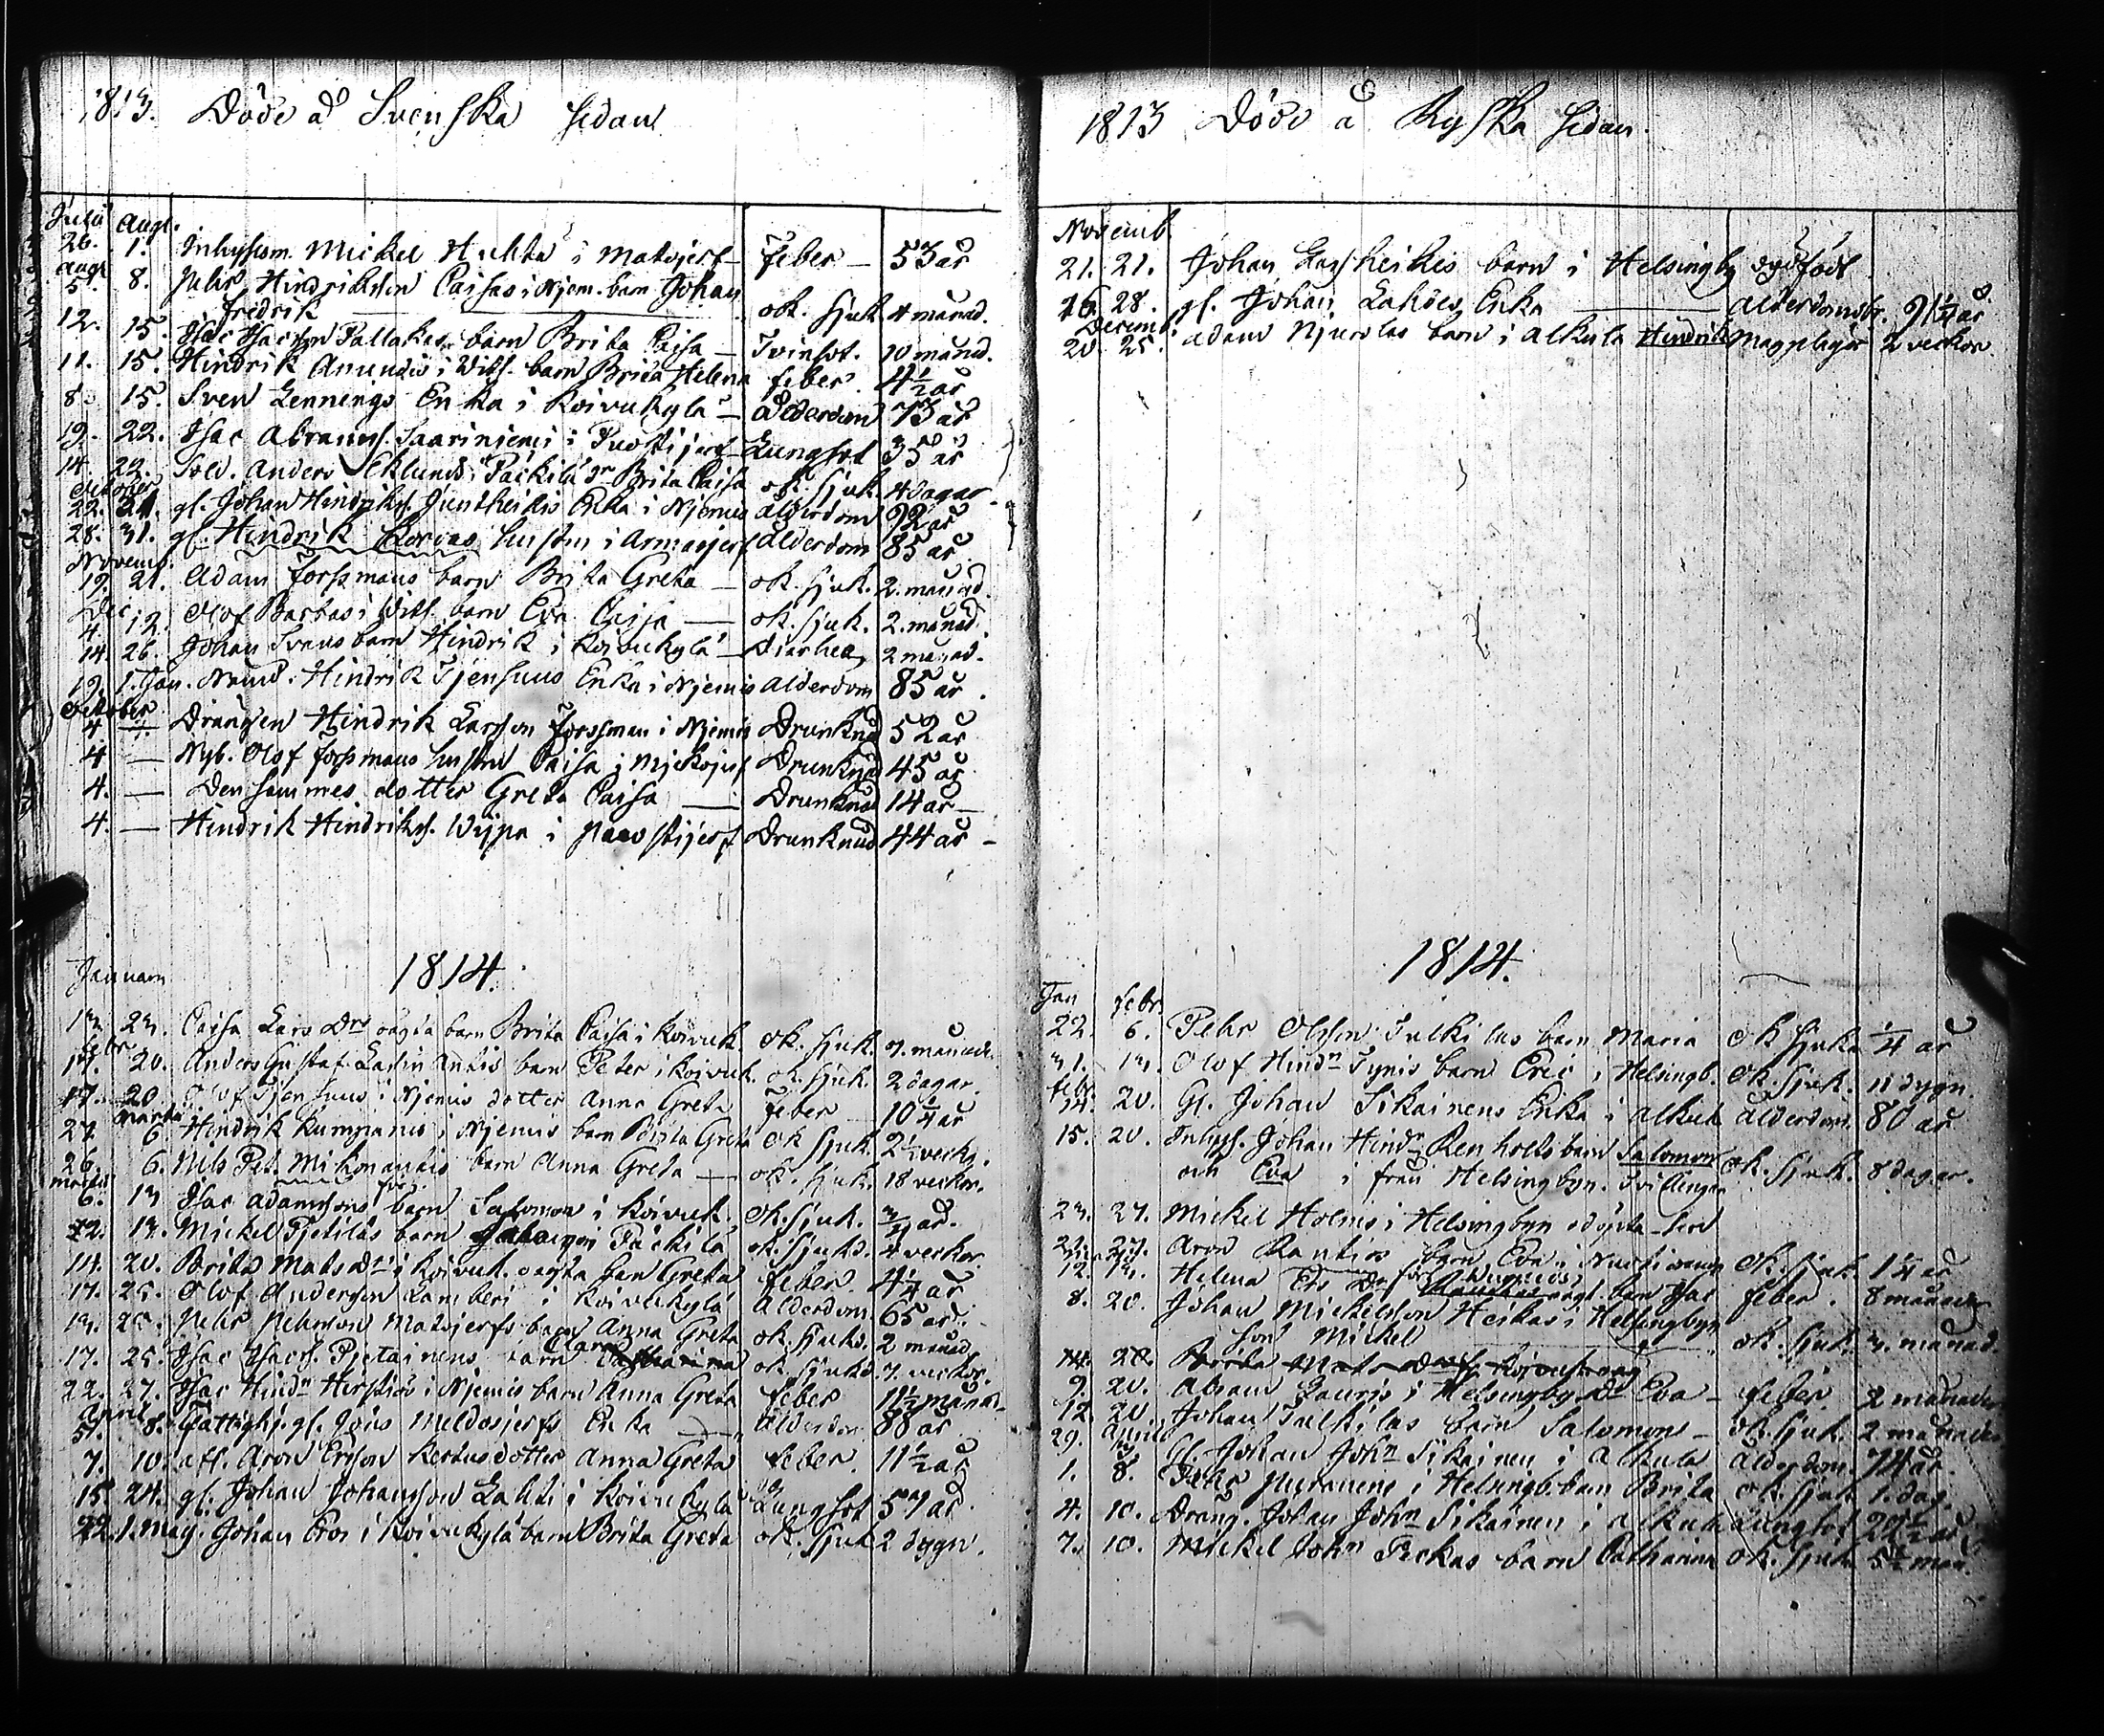 1813. Döde å Svenska sidan
Julii Aug.
26. 1. Inhyses m. Mickel Huhta i Matojerf feber 53 år
Aug. 5. 8. Pehr Hindriksson Caisas i Njem. barn Johan
Fredrik ok. sjuk 4 månad.
12. 15. Isac Isacsson Pallakas barn Brita Caisa Tvinsot. 10 månd.
11. 15. Hindrik Anundis i Witt. barn Brita Helena feber 4½ år
8. 15. Sven Lennings Enka i Koivukylä ålderdom 73 år
19. 22. Isac Abramss. Saariniemi i Puostijerf Lungsot 35 år
14. 22. Sold. Anders Eklunds i Päckilä dr Brita Caisa ok. sjuk. 4 dagar
October
22. 24. gl. Johan Hindrikss. Juntheikis Enka i Njemis ålderdom 92 år
28. 31. gl. Hindrik Korvas hustru i Armasjerf ålderdom 85 år
Novemb.
19. 21. Adam Forssmans barn Brita Greta ok. sjuk. 2. månad.
Dec.
4. 12. Olof Barbas i Witt. barn Eva Caisa ok. sjuk. 2. månad.
14. 26. Johan Svens barn Hindrik i Koivukylä Diarhea 2 månad.
19. 1. Jan. Nämd. Hindrik Tjenhuus Enka i Njemis Alderdom 85 år.
October
4 — Drängen Hindrik Larsson Forssman i Njemis Drunknad 52 år
4 — Nyb. Olof Forssmans hustru Caisa i Mjekojerf Drunknad 45 år
4. — Den sammes dotter Greta Caisa Drunknad 14 år
4. — Hindrik Hindrikss. Wypa i Puostijerf Drunknad 44 år
1814.
Januari
13. 23. Caisa Lars Drs oägta barn Brita Caisa i Koivuk. ok. sjuk. 7. månader
Febr.
17. 20. Anders Gustaf Lasin Antis barn Peter i Koivuk. ok. sjuk. 2 dagar
17. 20. Olof Tjenhuus i Njemis dotter Anna Greta feber 10¼ år
Martii
27. 6. Hindrik Kumpanis i Njemis barn Brita Greta ok sjuk. 2½ veck.
26. 6. Nils Pet. Mikonantis barn Anna Greta ok. sjuk. 18 veckor.
Martii
6. 13 Isac Adamssons barn Salomon i Koivuk. ok. sjuk. ¾ år.
12. 13. Mickel Pjetiläs barn i Päckilä ok. sjukd. 4 veckor
14. 20. Brita Mats dr i Koivuk. oägta barn Greta feber. 4¼ år
17. 25. Olof Andersson Lamberi i Koivukylä Alderdom 65 år
19. 25. Pehr Pehrsson Matojerfs barn Anna Greta ok. sjukd. 2 månad
17. 25. Isac Isacss. Pjetainens barn Clara ok. sjukd. 7. veckor.
22. 27. Isac Hindn Herstiös i Njemis barn Anna Greta feber 11½ månad
April
5. 8. Fattighj. gl. Jöns Meldosjerfs Enka Alderdom 88 år
7. 10. afl. Aron Ersson Kertus dotter Anna Greta feber. 11½ år
15 24. gl. Johan Johansson Lahti i Koivukylä Lungsot 57 år
22. 1. May. Johan Eros i Koivukylä barn Brita Greta ok. sjuk 2 dygn.
1813 Döde å Ryska sidan.
Novemb.
21. 21. Johan Lassheikis barn i Helsingby dödfödt
16 28. gl. Johan Lahdes Enka Alderdomsbr. 91¼ år
Decemb.
20 25. Adam Njurolas barn i Alkula Hindrik Magplågor 2 veckor.
1814.
Jan Febr.
22. 6. Pehr Olsson Tulkilas barn Maria ok sjuka ¼ år
31. 13. Olof Hindn Tynis barn Eric i Helsingb. ok. sjuk. 11 dygn.
Febr.
14. 20. Gl. Johan Sikainens Enka i Alkula Alderdom. 80 år
15. 20. Inhys. Johan Hindn Renholts barn Salomon
och Eva i från Helsingbyn. Tvillingar ok. sjuk. 8 dagar.
23. 27. Mickel Holms i Helsingbyn odöpta son
27. Aron Rantios barn Eva i ok. sjuk. 1¼ år
12. 13. Helena Ers Dr oägt. barn Isac feber. 8 månader
8. 20. Johan Mickelsson Heikas i Helsingbyn
son Mickel ok. sjuk. 3. månad.
14. 20. Brita Mats
9. 20. Abram Lauris i Helsingby dr Eva feber. 2 månader
12 20. Johan Tulkilas barn Salomon ok. sjuk. 2 månader
April
29. 3 Gl. Johan John Sikainen i Alkula Alderdom. 74 år.
1. 8. Pehr Puranens i Helsingb. barn Brita ok. sjuk 1. dag.
4. 10. Dräng. Johan John Sikainen i Alkula Lungsot 20½ år
7. 10. Mickel John Peckas barn Catharina ok. sjuk. 5½ mån.